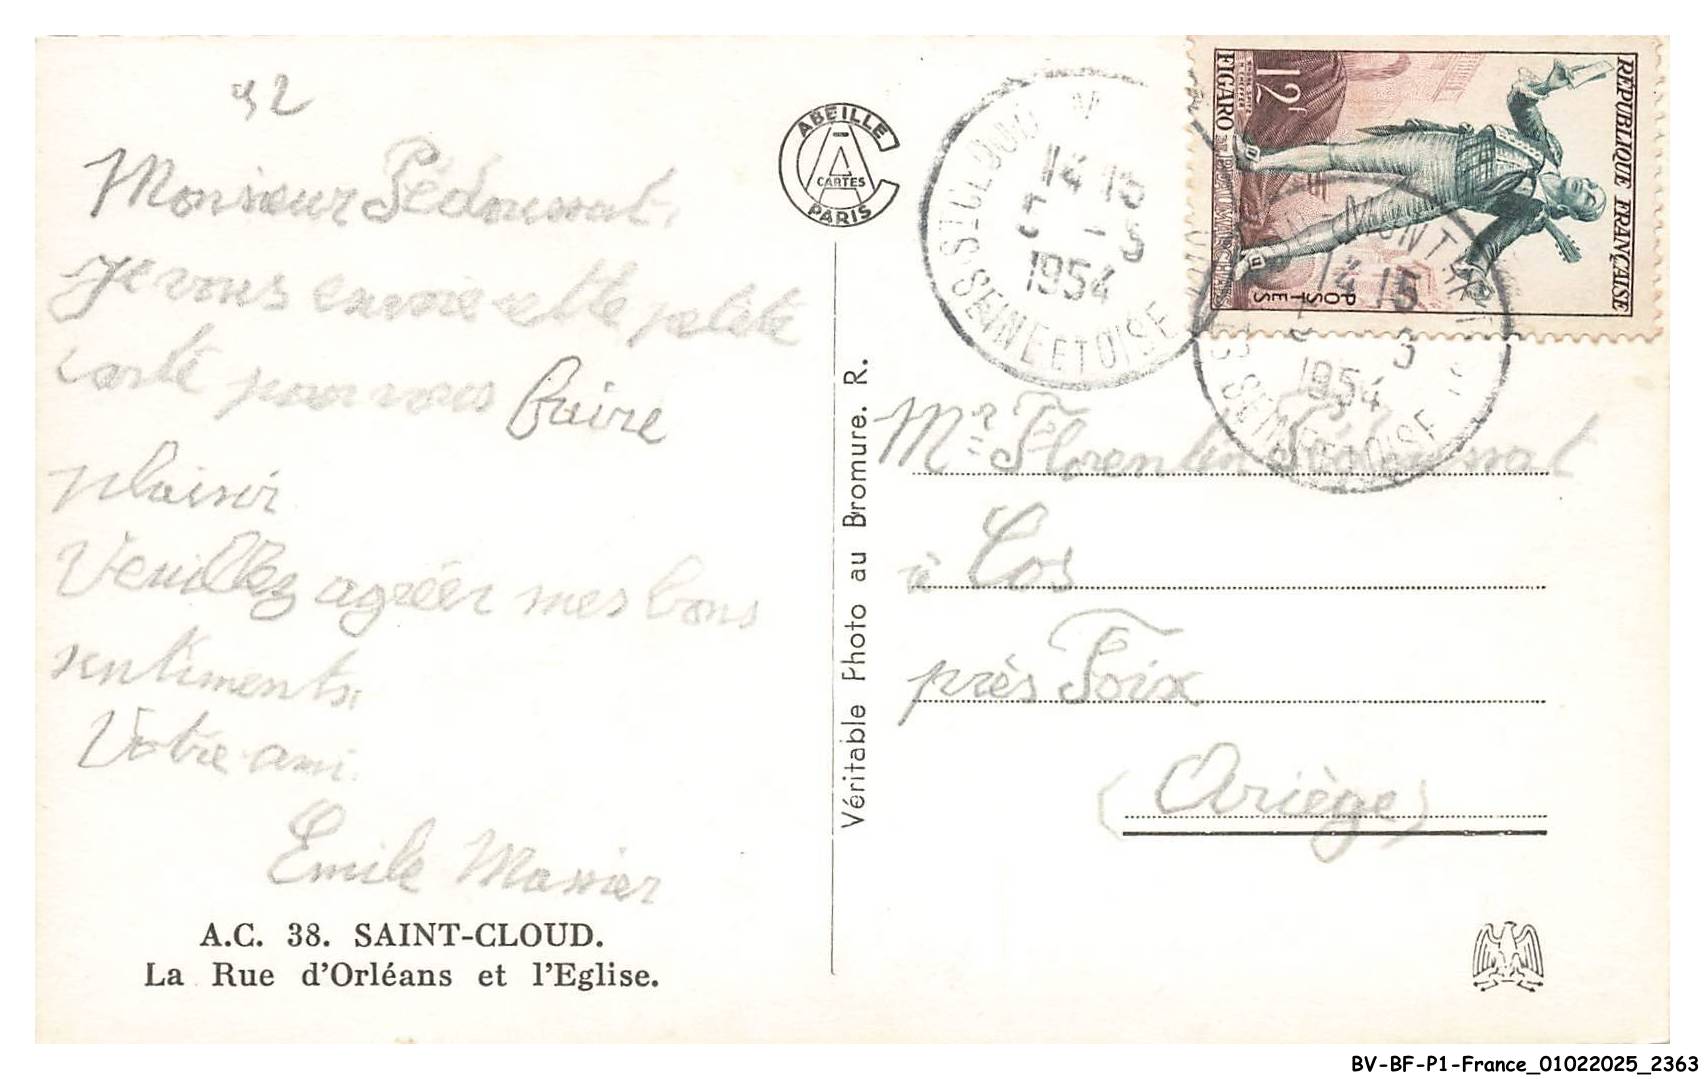 92
Monsieur Pédoussat.
Je vous envoie cette petite
carte pour vous faire
plaisir
Veuillez agréer mes bons
sentiments.
Votre ami.
Emile Massier
A.C. 38. SAINT-CLOUD.
La Rue d'Orléans et l'Eglise.
ABEILLE
CARTES
PARIS
Véritable Photo au Bromure. R.
ST CLOUD
14 15
5 - 5
1954
SEINE ET OISE
REPUBLIQUE FRANÇAISE
12F
FIGARO
POSTES
14 15
1954
Mr Florentin Pédoussat
à Cos
près Foix
(Ariège)
BV-BF-P1-France_01022025_2363